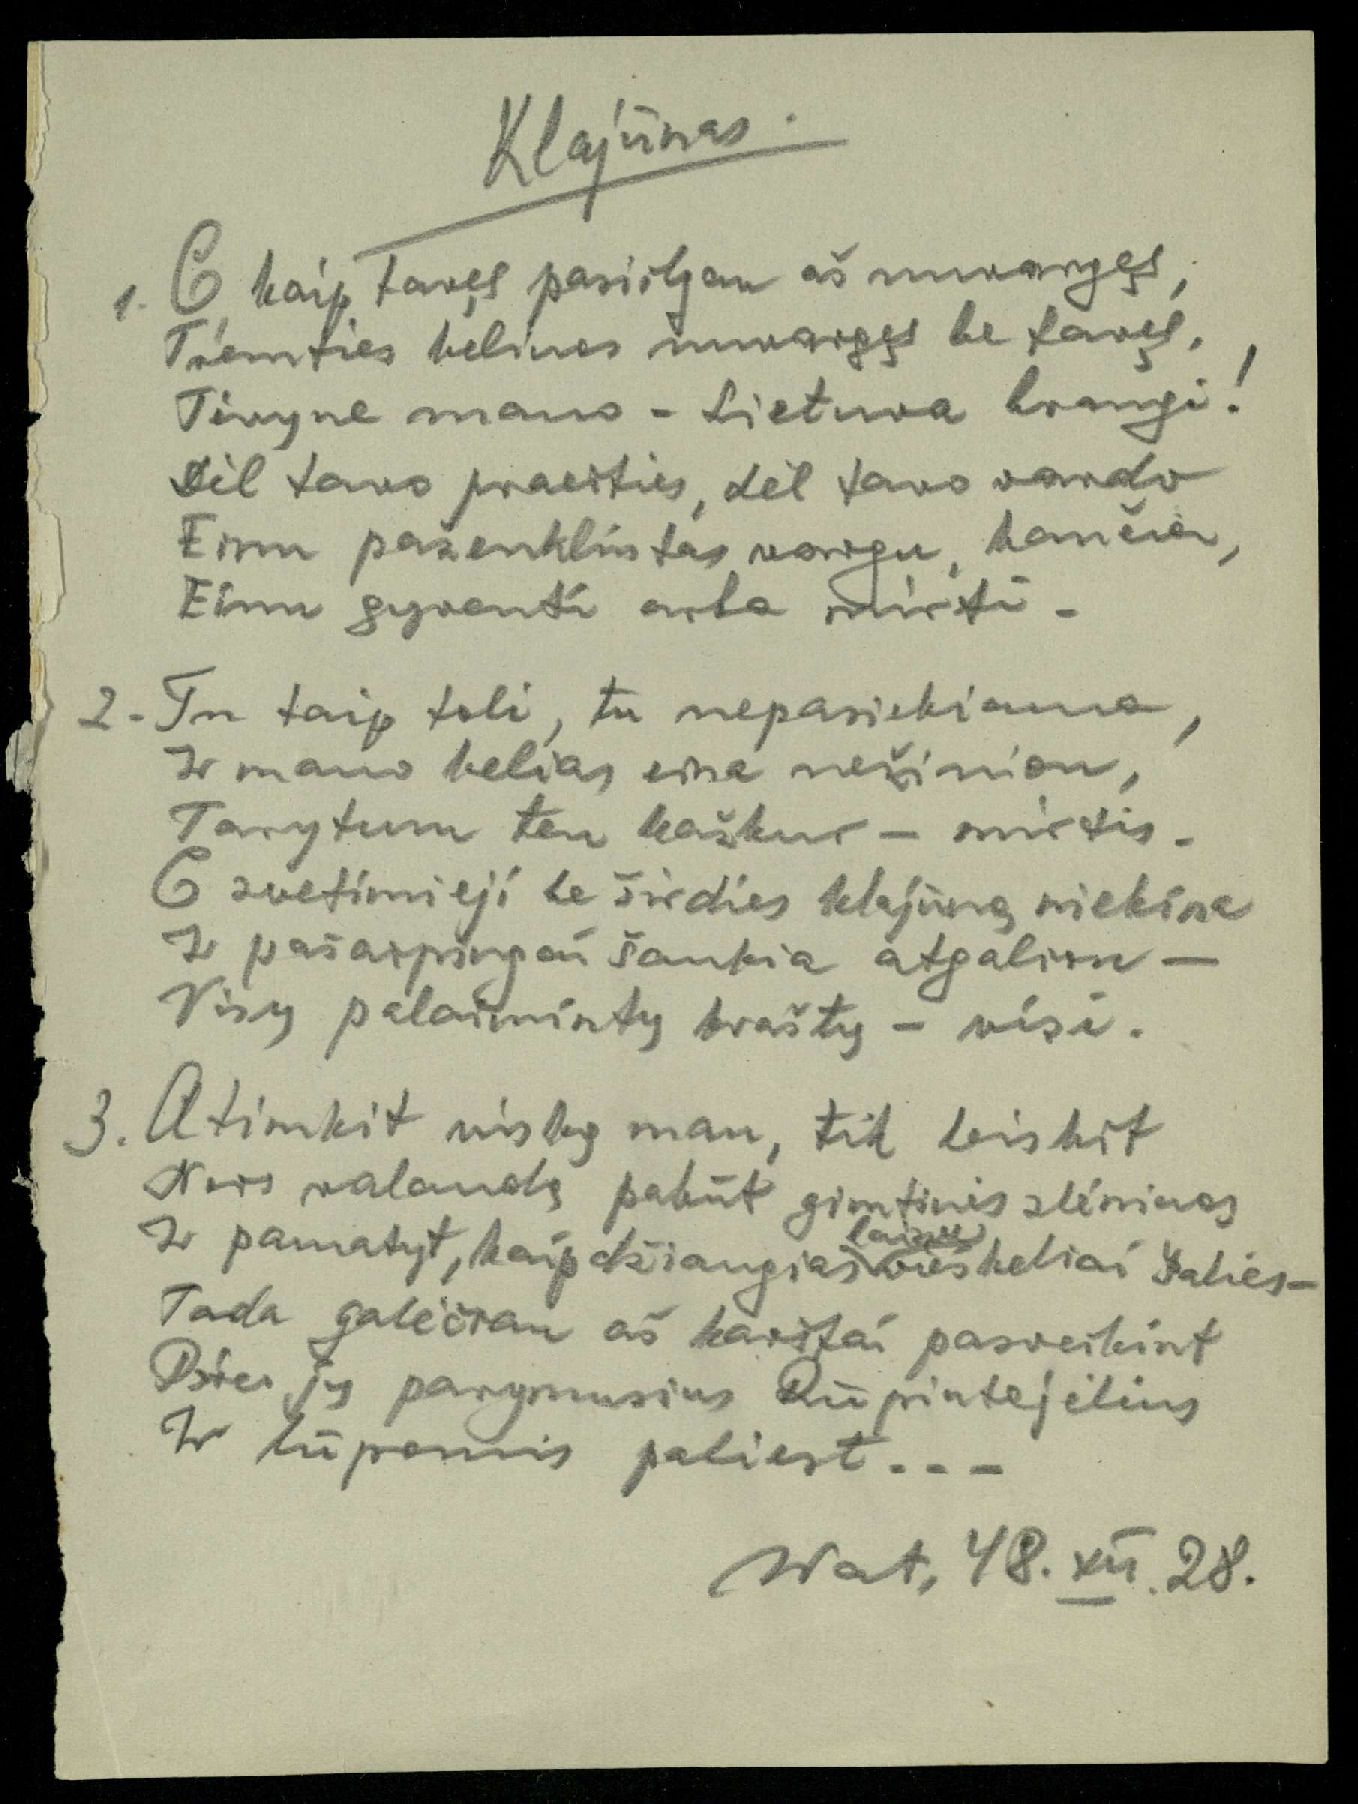 Klajūnas.
1. O, kaip Tavęs pasiilgau aš nuvargęs,
Tremties keliuos nuvargęs be tavęs,
Tėvyne mano - Lietuva brangi!
Dėl tavo praeities, dėl tavo vardo
Einu paženklintas vargu, kančia,
Einu gyventi arba mirti -
2. Tu taip toli, tu nepasiekiama,
Ir mano kelias eina nežinion,
Tarytum ten kažkur - mirtis.
O svetimieji be širdies klajūną niekina
Ir pašaipingai šaukia atgalion -
Visų palaimintų kraštų - visi.
3. Atimkit viską man, tik leiskit
Nors valandą pabūt gimtinės slėniuos
Ir pamatyt, kaip džiaugias laisvu vieškeliai šalies -
Tada galėčiau aš karštai pasveikint
Prie jų parymusius Rūpintojėlius
Ir lūpomis paliest...
Wat, 48. XII. 28.